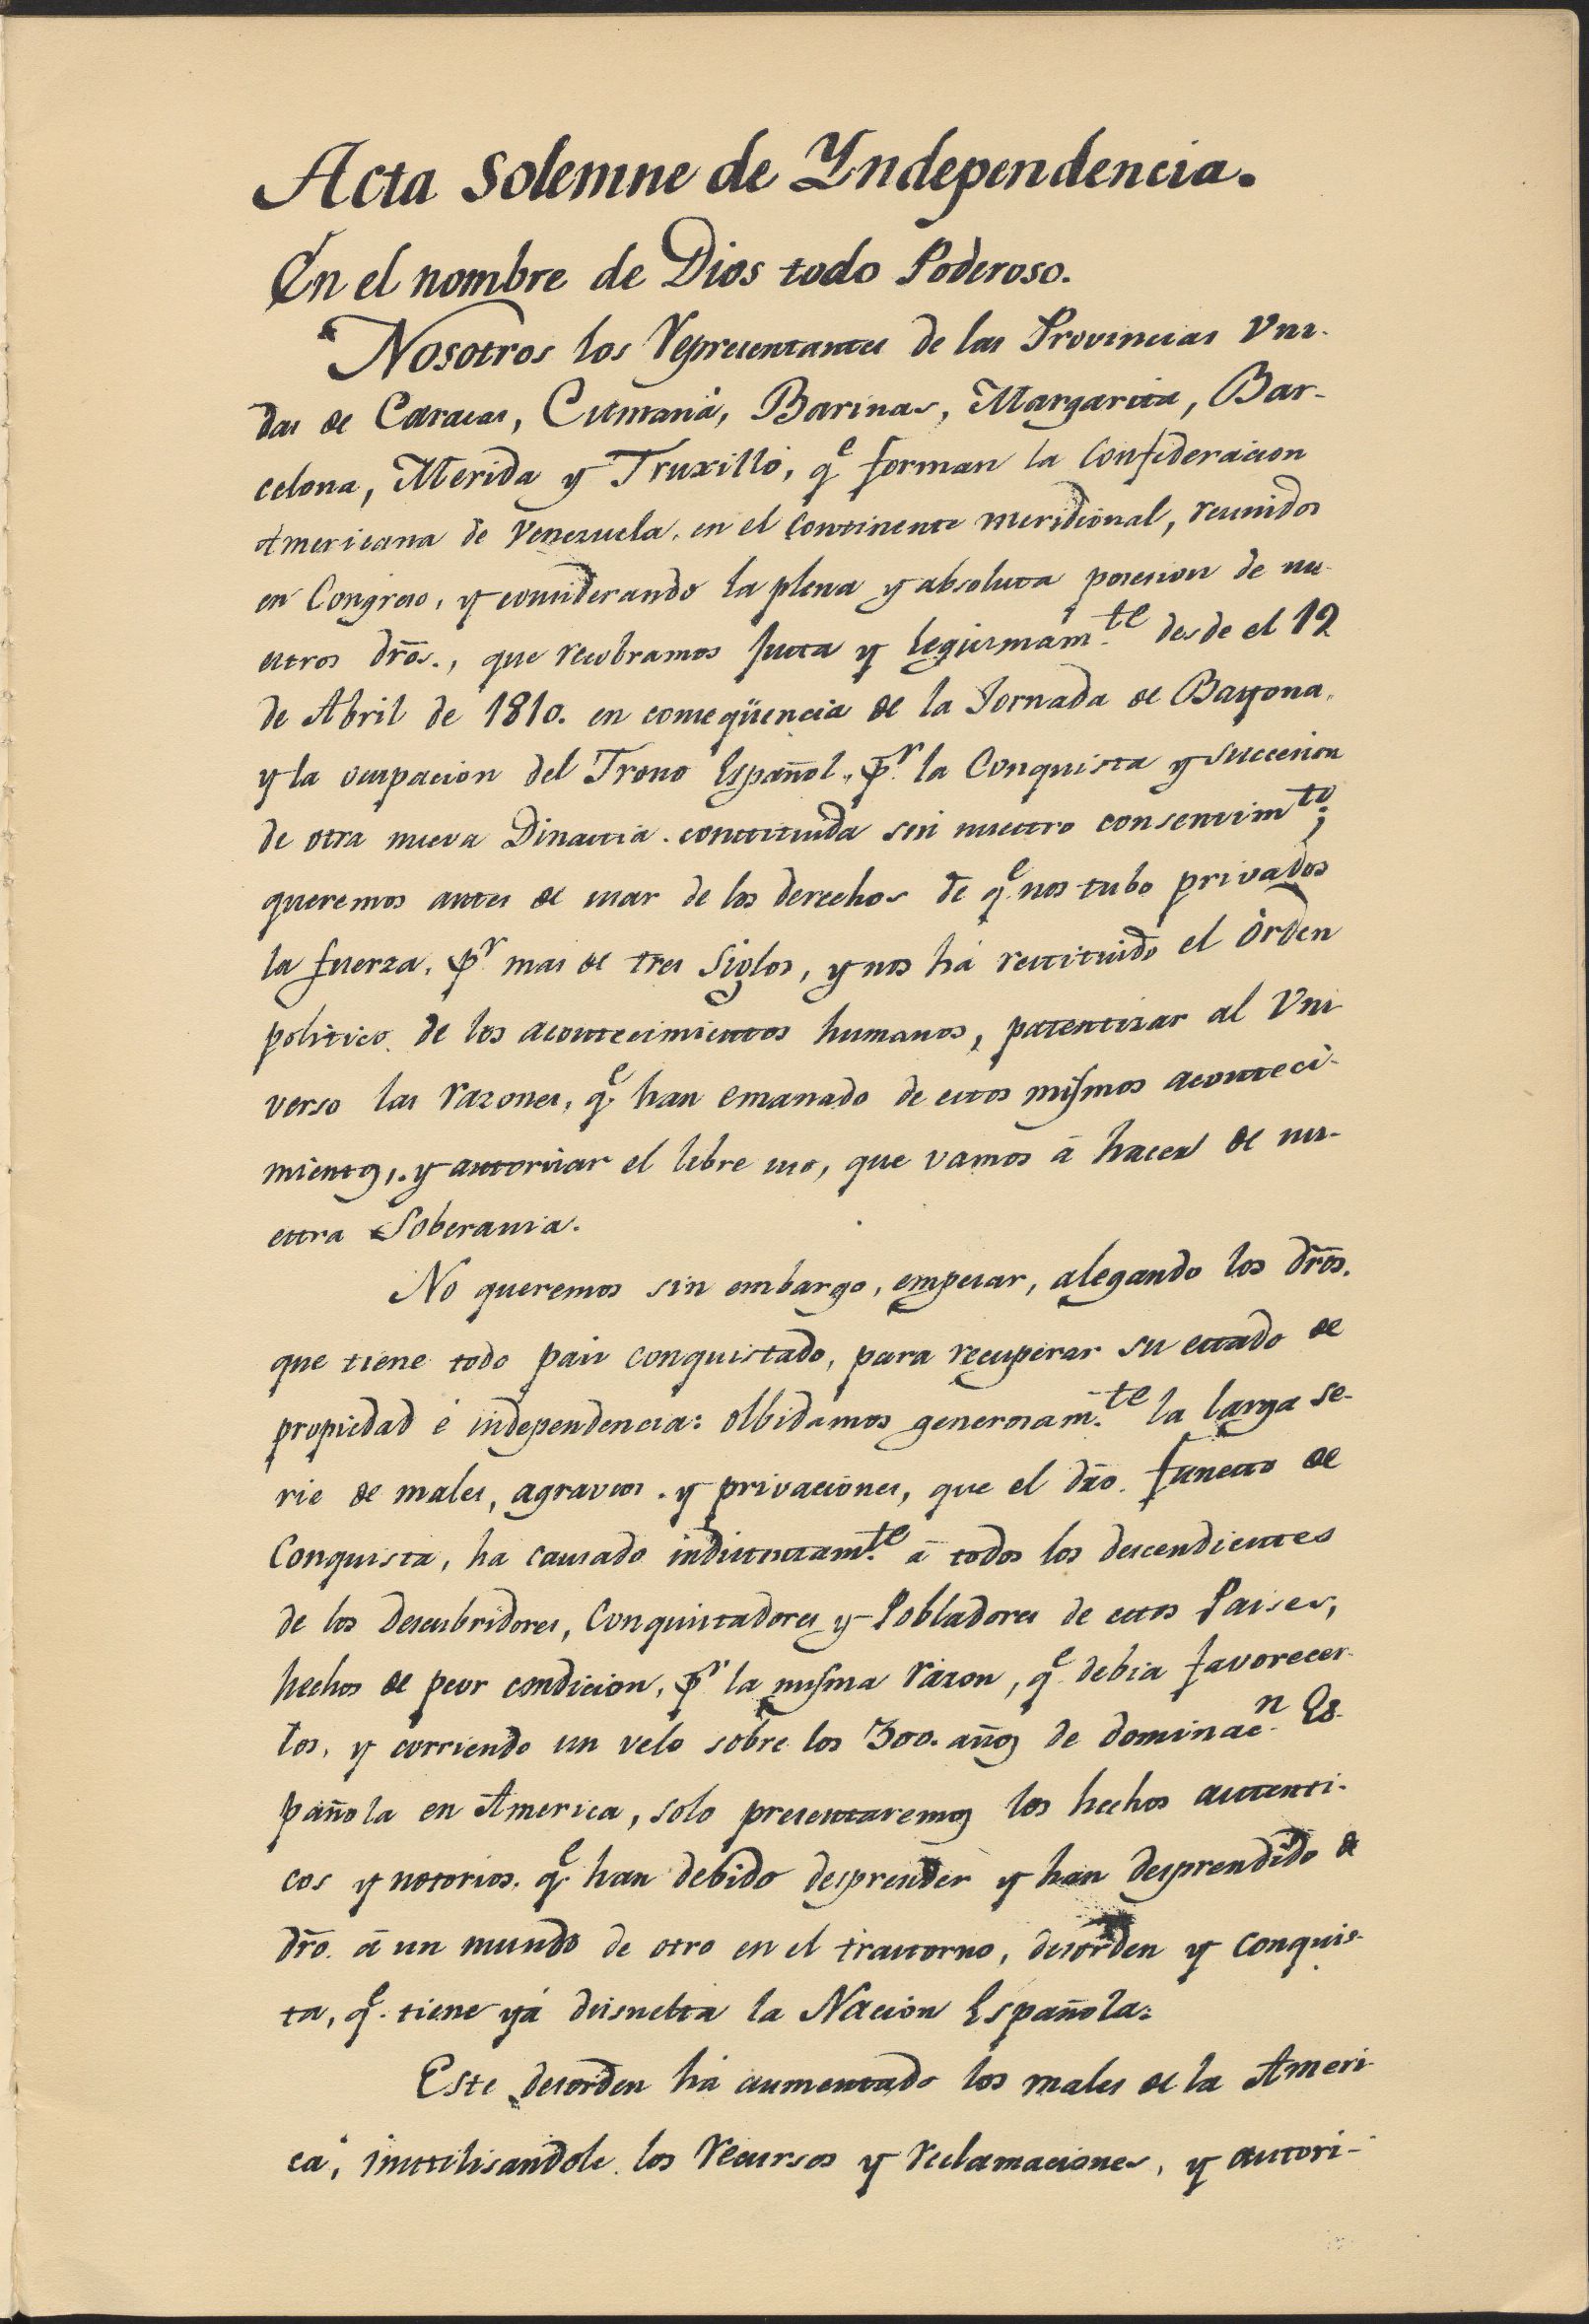 Acta Solemne de Yndependencia.
En el nombre de Dios todo Poderoso.
Nosotros los Representantes de las Provincias Uni-
das de Caracas, Cumaná, Barinas, Margarita, Bar-
celona, Merida y Truxillo, q.e forman la Confederacion
Americana de Venezuela, en el Continente meridional, reunidos
en Congreso, y considerando la plena y absoluta posesion de nu-
estros dr̃os., que recobramos justa y legitimam.te desde el 19
de Abril de 1810. en conseqüencia de la Jornada de Bayona,
y la ocupacion del Trono Español, p.r la Conquista y succesion
de otra nueva Dinastia. constituida sin nuestro consentim.to;
queremos antes de usar de los derechos de q.e nos tubo privados
la fuerza, p.r mas de tres Siglos, y nos há restituido el órden
politico de los acontecimientos humanos, patentizar al Uni
verso las razones, q.e han emanado de estos mismos aconteci-
mientos, y autorizar el libre uso, que vamos á hacer de nu-
estra Soberania.
No queremos sin embargo, empezar, alegando los dr̃os.
que tiene todo pais conquistado, para recuperar su estado de
propiedad é independencia: olbidamos generosam.te la larga se-
rie de males, agravios. y privaciones, que el dr̃o. funesto de
Conquista, ha causado indistintam.te á todos los descendientes
de los Descubridores, Conquistadores y Pobladores de estos Paises,
hechos de peor condicion, p.r la misma razon, q.e debia favorecer-
los, y corriendo un velo sobre los 300. años de dominac.n Es-
pañola en America, solo presentaremos los hechos autenti-
cos y notorios, q.e han debido desprender y han desprendido de
dr̃o. á un mundo de otro en el trastorno, desorden y conquis-
ta, q.e tiene yá disuelta la Nacion Española:
Este desorden há aumentado los males de la Ameri-
ca, inutilisandole los recursos y reclamaciones, y autori-